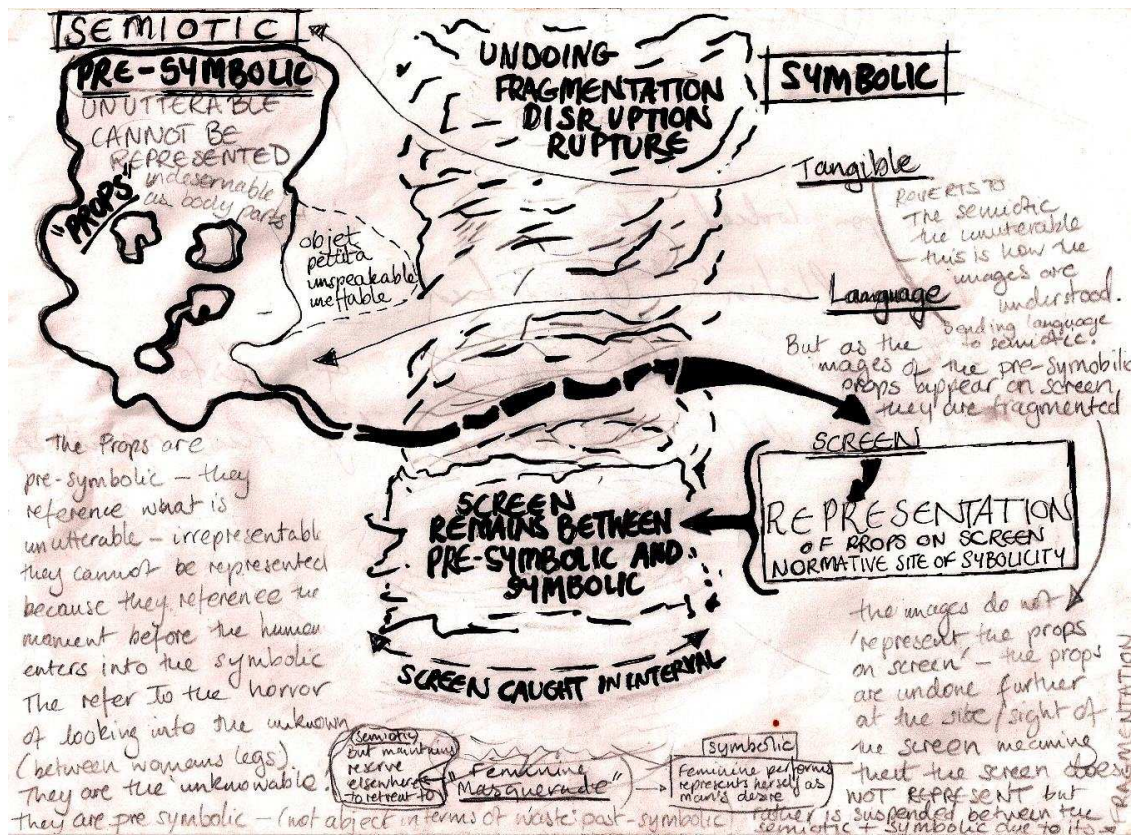 SEMIOTIC
PRE-SYMBOLIC
UNUTTERABLE
CANNOT BE
REPRESENTED
undesernable
as body parts
"PROPS"
objet
petita
unspeakable
ineffable
UNDOING
FRAGMENTATION
DISRUPTION
RUPTURE
SYMBOLIC
Tangible
ROVERTS TO
The semiotic
the unuterable
- this is how the
images are
understood.
Language
Sending language
to semiotic.
But as the
images of the pre-symobilic
props appear on screen
they are fragmented
SCREEN
REPRESENTATION
OF PROPS ON SCREEN
NORMATIVE SITE OF SYBOLICITY
SCREEN
REMAINS BETWEEN
PRE-SYMBOLIC AND
SYMBOLIC
SCREEN CAUGHT IN INTERVAL
The Props are
pre-symbolic - they
reference what is
unutterable - irrepresentable
they cannot be represented
because they reference the
moment before the human
enters into the symbolic
The refer To the horror
of looking into the unknown
(between womans legs).
They are the unknowable.
They are pre symbolic - (not abject in terms of waste: past-symbolic)
(semiotic)
but maintains
reserve
elsewhere
to retreat to
"Feminine
Masquerade"
symbolic
Feminine performs
represents herself as
man's desire
the images do not
'represent the props
on screen' - the props
are undone further
at the site/sight of
the screen meaning
that the screen does
NOT REPRESENT but
rather is suspended between the
semiotic + symbolic due to its
FRAGMENTATION